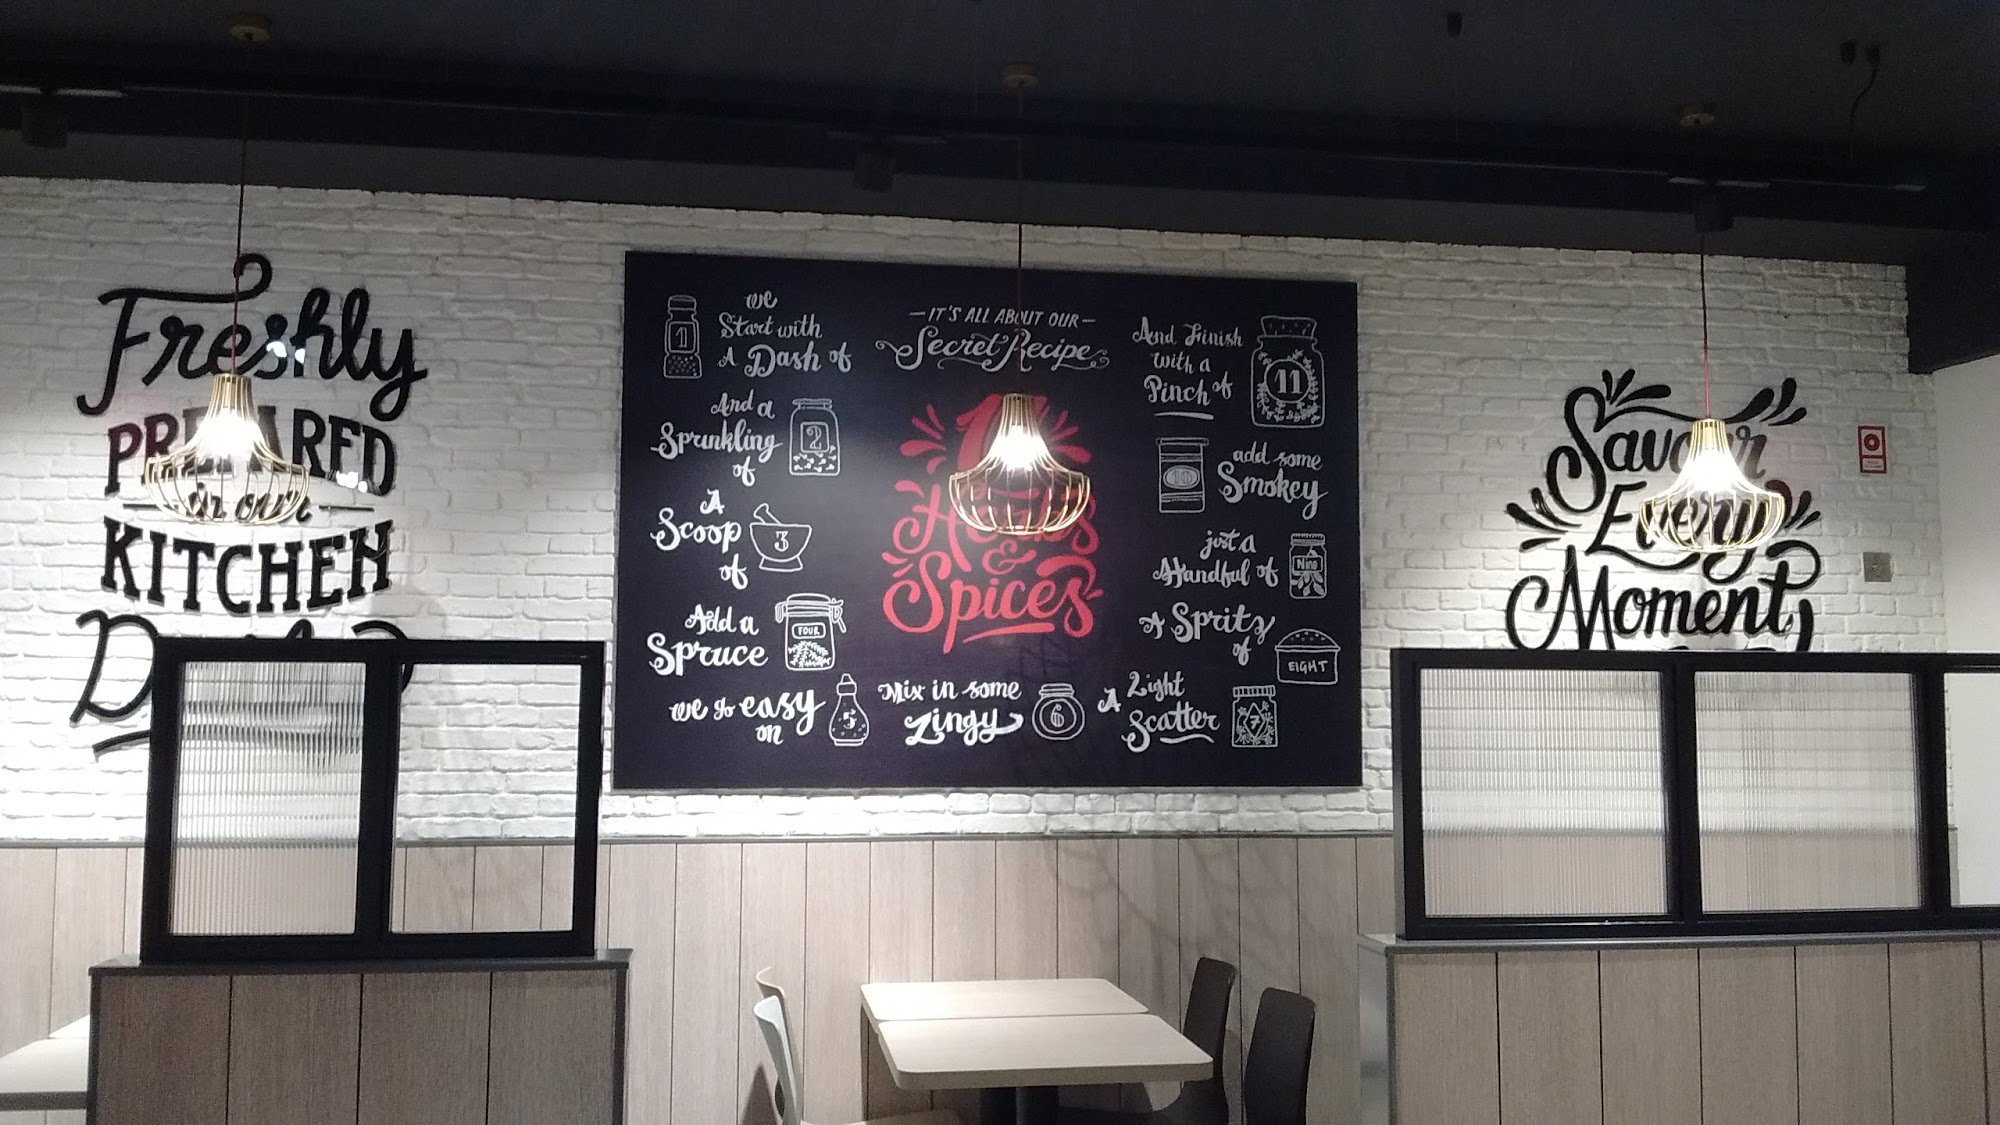 Freshly
PREPARED
in our
KITCHEN
IT'S ALL ABOUT OUR
Secret Recipe
11
Herbs
&
Spices
1
we
Start with
A Dash of
And a
Sprinkling
of
2
A
Scoop
of
3
Add a
Spruce
FOUR
we go easy
on
5
Mix in some
Zingy
6
A Light
Scatter
7
A Spritz
of
EIGHT
just a
Handful of
Nine
add some
Smokey
10
And Finish
with a
Pinch of
11
Savour
Every
Moment